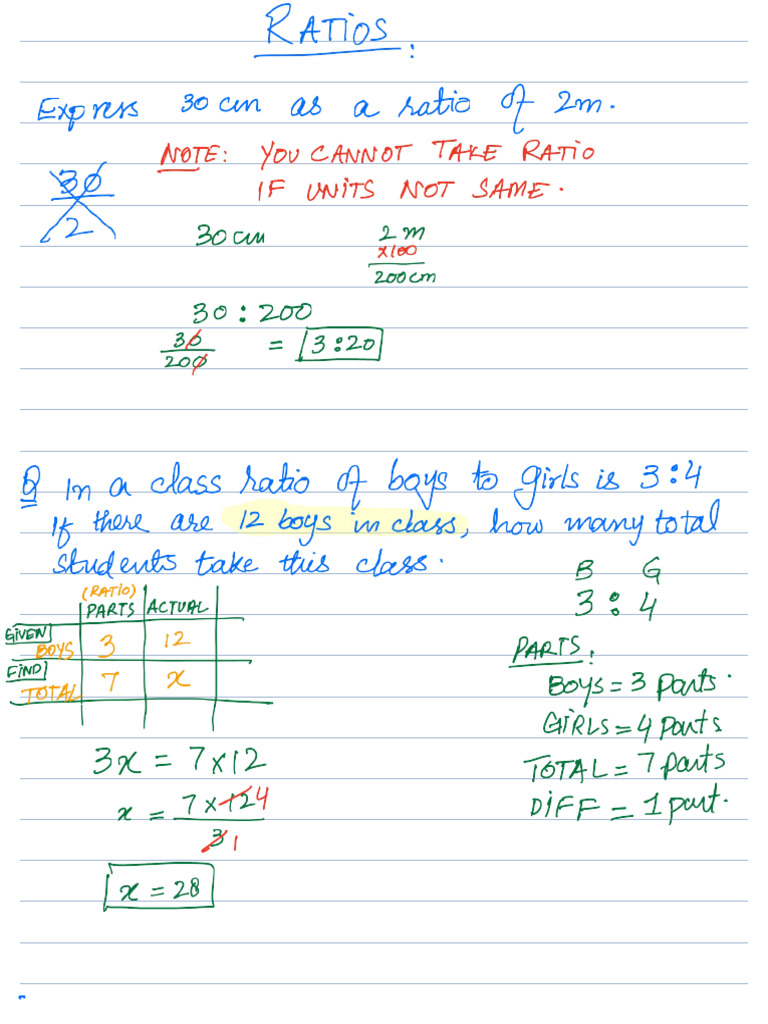 RATIOS:
Express 30 cm as a ratio of 2m.
NOTE: YOU CANNOT TAKE RATIO
IF UNITS NOT SAME.
30
2
30 cm 2 m
×100
200 cm
30 : 200
30
200
= 3:20
Q In a class ratio of boys to girls is 3:4
If there are 12 boys in class, how many total
students take this class.
B G
3 : 4
(RATIO)
PARTS ACTUAL
GIVEN
BOYS 3 12
FIND
TOTAL 7 x
PARTS:
BOYS = 3 parts.
GIRLS = 4 parts
TOTAL = 7 parts
DIFF = 1 part.
3x = 7 × 12
x = 7 × 12 4
3 1
x = 28